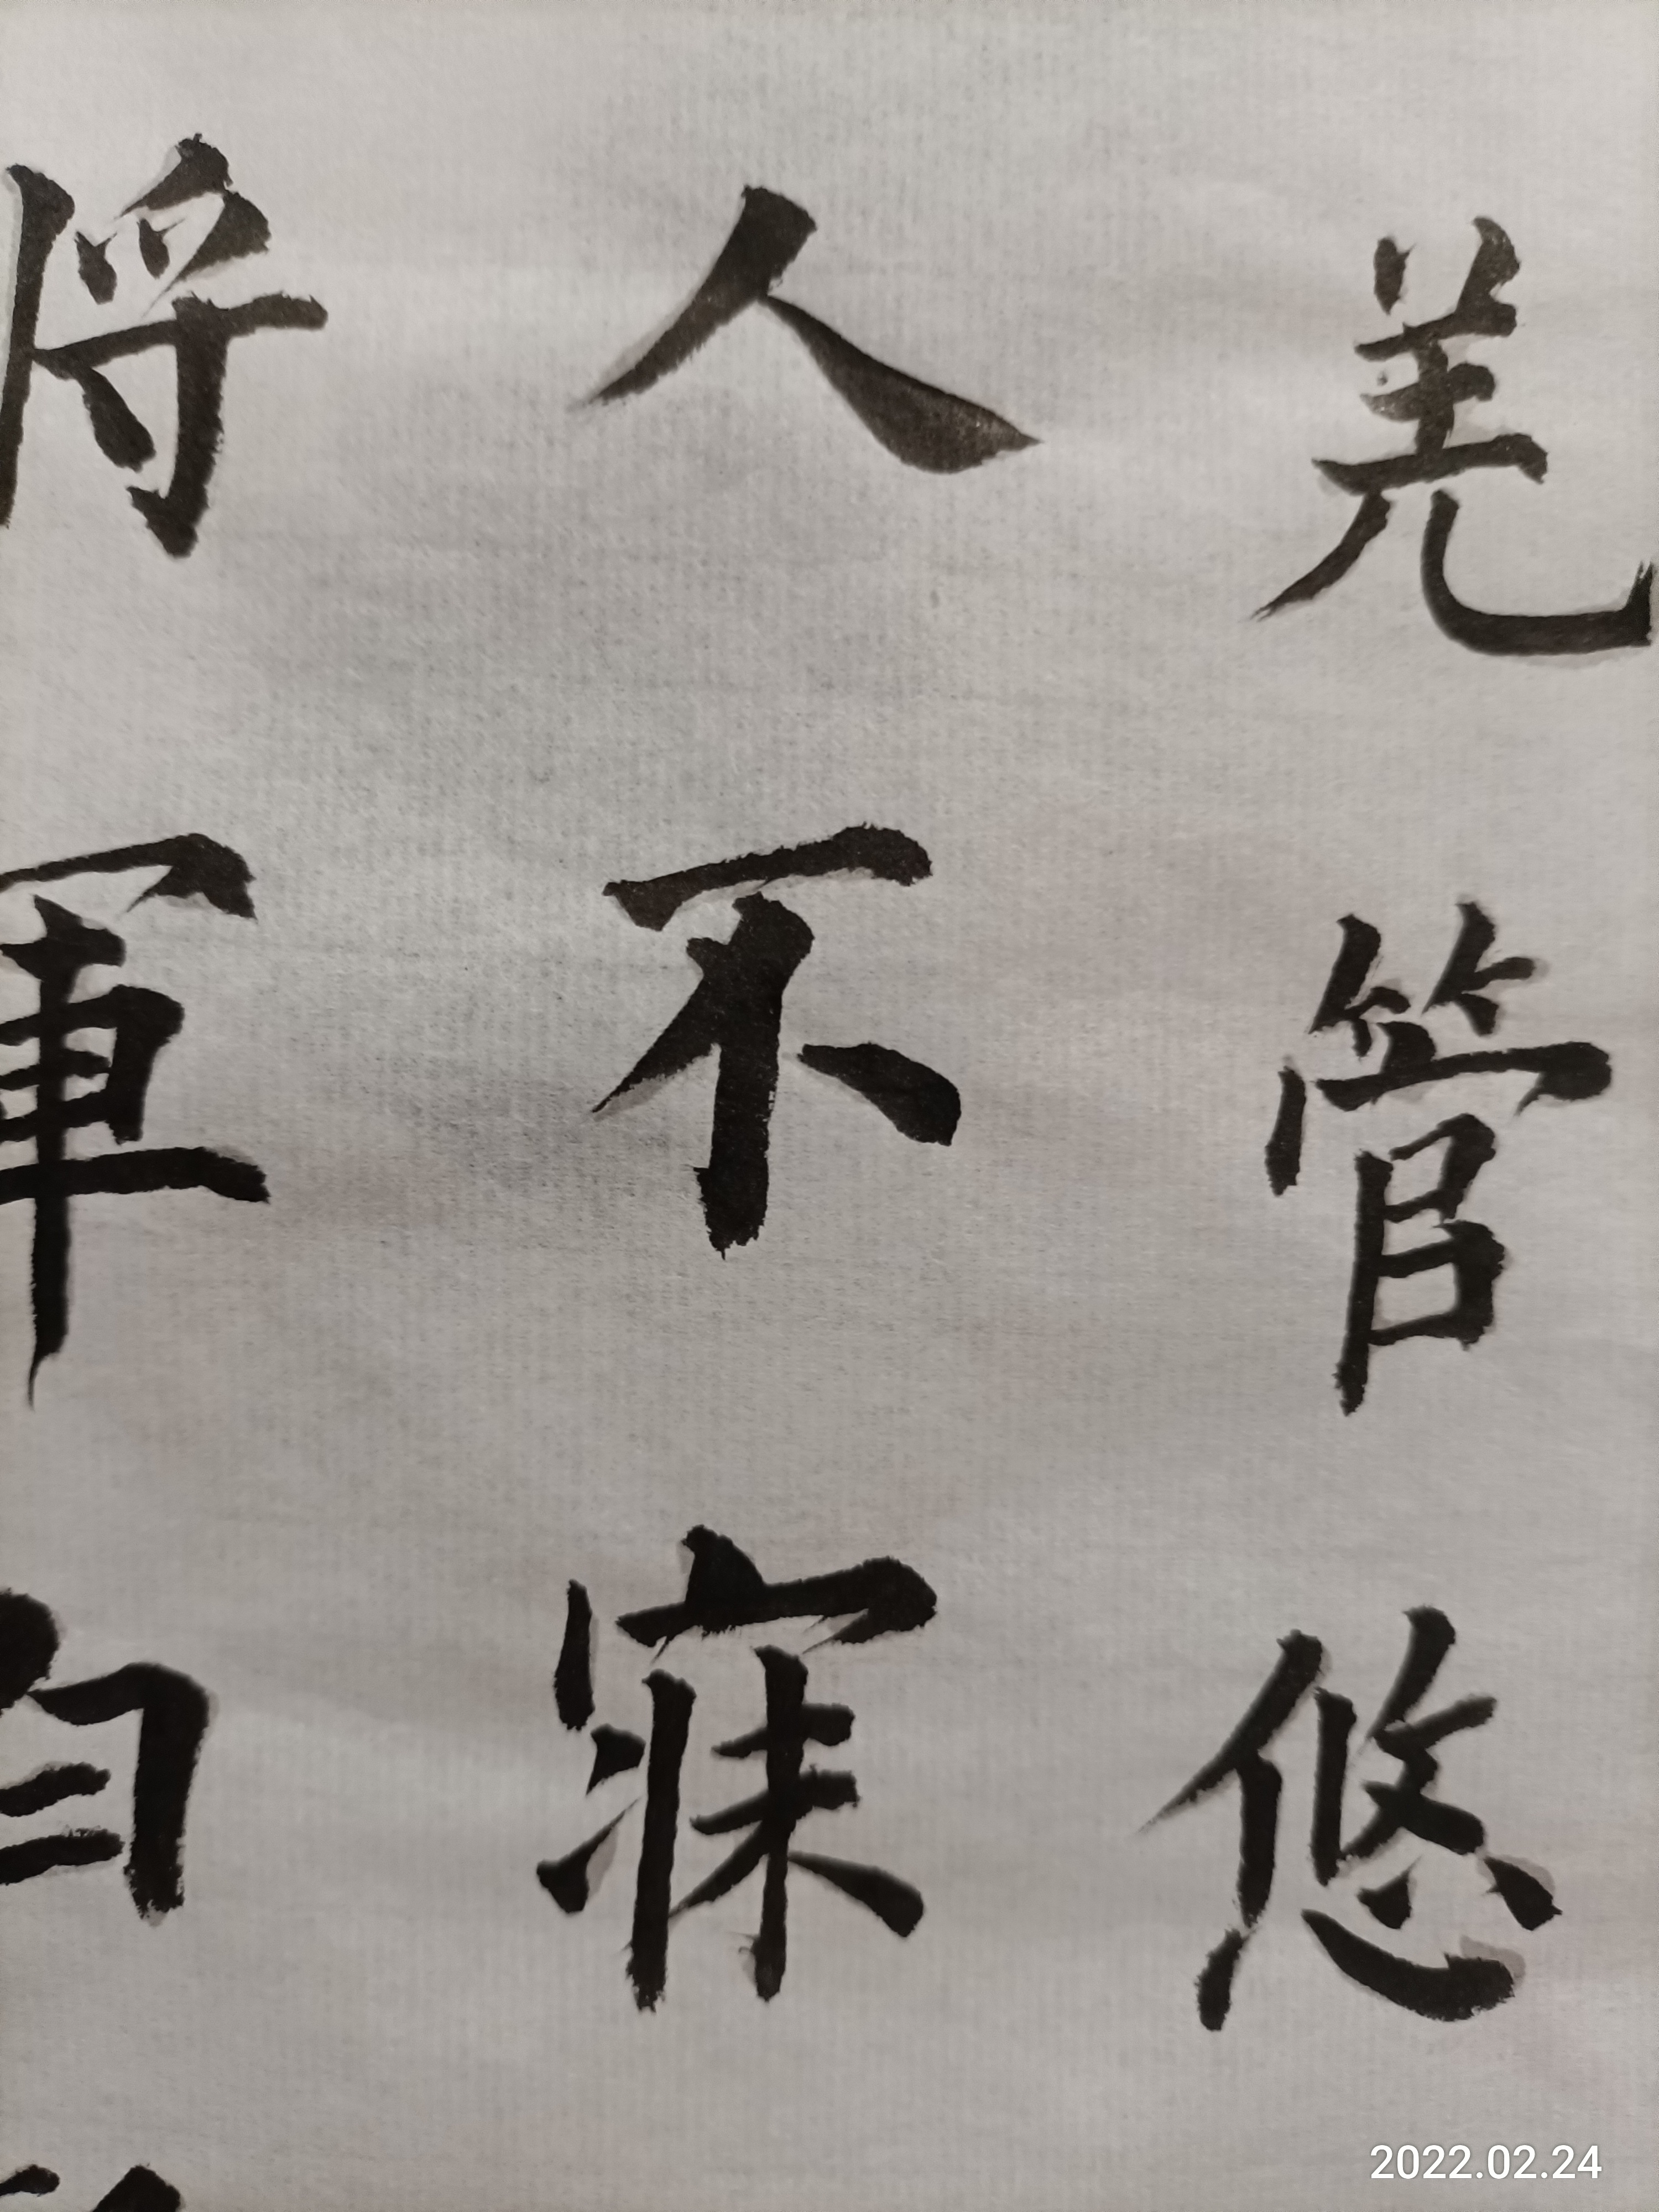 羌管悠
人不寐
将軍白
2022.02.24